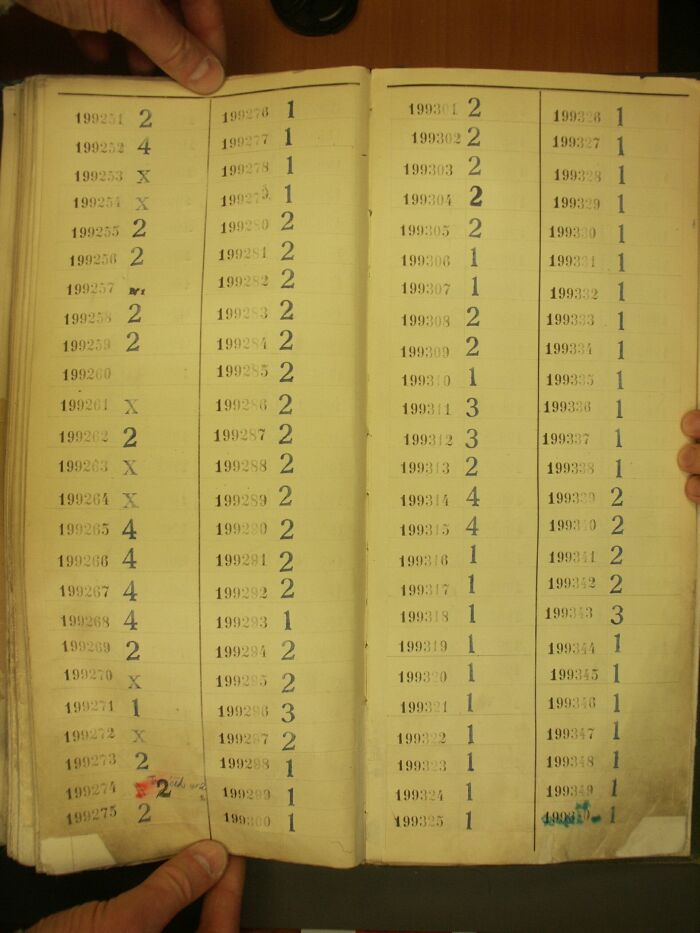 199251 2
199252 4
199253 X
199254 X
199255 2
199256 2
199257
199258 2
199259 2
199260
199261 X
199262 2
199263 X
199264 X
199265 4
199266 4
199267 4
199268 4
199269 2
199270 X
199271 1
199272 X
199273 2
199274 2
199275 2
199276 1
199277 1
199278 1
199279 1
199280 2
199281 2
199282 2
199283 2
199284 2
199285 2
199286 2
199287 2
199288 2
199289 2
199290 2
199291 2
199292 2
199293 1
199294 2
199295 2
199296 3
199297 2
199298 1
199299 1
199300 1
199301 2
199302 2
199303 2
199304 2
199305 2
199306 1
199307 1
199308 2
199309 2
199310 1
199311 3
199312 3
199313 2
199314 4
199315 4
199316 1
199317 1
199318 1
199319 1
199320 1
199321 1
199322 1
199323 1
199324 1
199325 1
199326 1
199327 1
199328 1
199329 1
199330 1
199331 1
199332 1
199333 1
199334 1
199335 1
199336 1
199337 1
199338 1
199339 2
199340 2
199341 2
199342 2
199343 3
199344 1
199345 1
199346 1
199347 1
199348 1
199349 1
199350 1